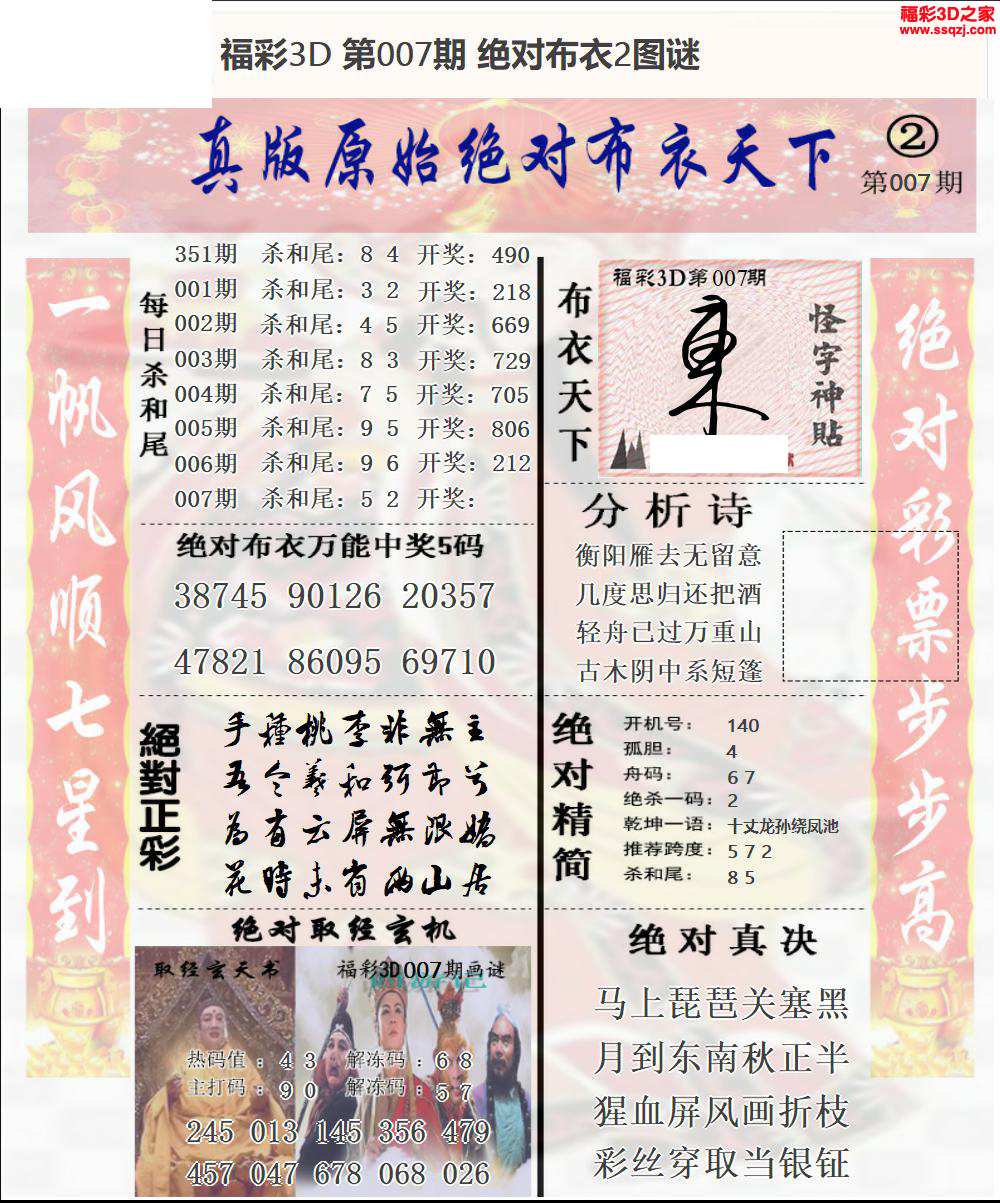 福彩3D之家
www.ssqzj.com
福彩3D 第007期 绝对布衣2图谜
真版原始绝对布衣天下
②
第007期
一帆风顺七星到
每日杀和尾
351期 杀和尾：8 4 开奖：490
001期 杀和尾：3 2 开奖：218
002期 杀和尾：4 5 开奖：669
003期 杀和尾：8 3 开奖：729
004期 杀和尾：7 5 开奖：705
005期 杀和尾：9 5 开奖：806
006期 杀和尾：9 6 开奖：212
007期 杀和尾：5 2 开奖：
绝对布衣万能中奖5码
38745 90126 20357
47821 86095 69710
絕對正彩
手種桃李非無主
為有云屏無限嬌
花時未省兩山居
绝对取经玄机
取经玄天书
福彩3D007期画谜
热码值：4 3 解冻码：6 8
主打码：9 0 解冻码：5 7
245 013 145 356 479
457 047 678 068 026
布衣天下
福彩3D第007期
怪字神貼
分析诗
衡阳雁去无留意
几度思归还把酒
轻舟已过万重山
古木阴中系短篷
绝对精简
开机号： 140
孤胆： 4
舟码： 6 7
绝杀一码： 2
乾坤一语： 十丈龙孙绕凤池
推荐跨度： 5 7 2
杀和尾： 8 5
绝对真决
马上琵琶关塞黑
月到东南秋正半
猩血屏风画折枝
彩丝穿取当银钲
绝对彩票步步高